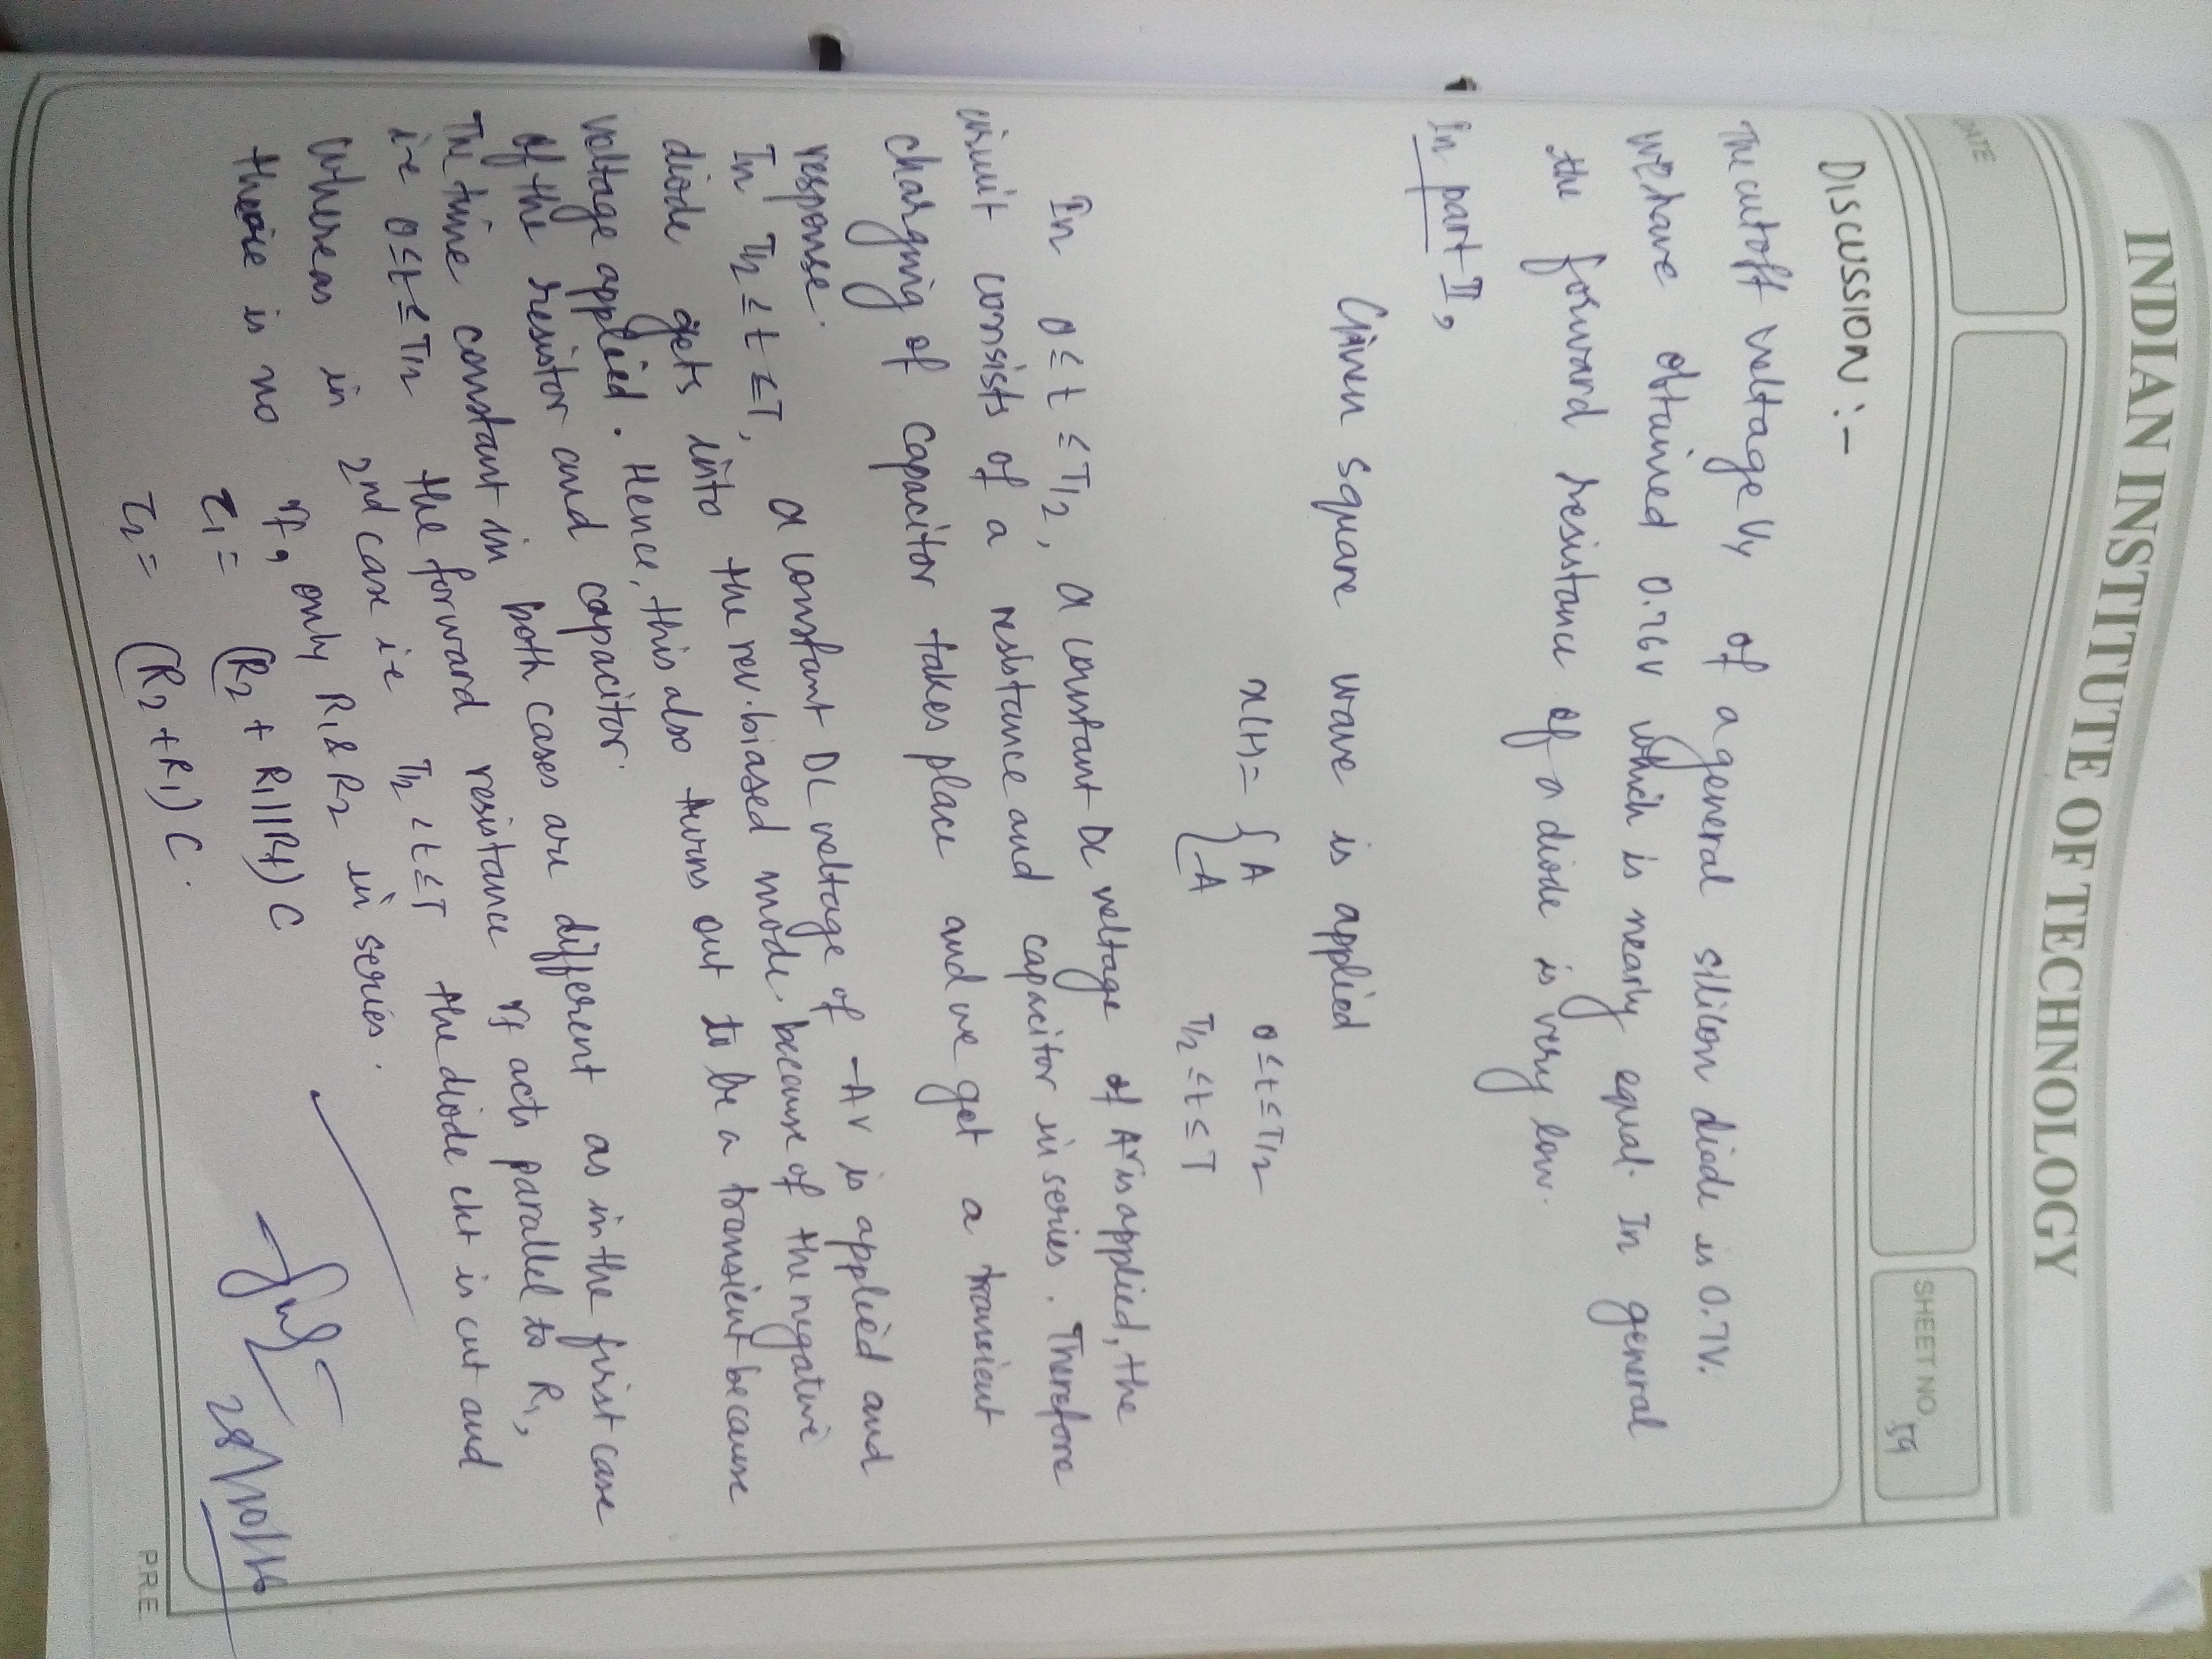 INDIAN INSTITUTE OF TECHNOLOGY
DATE
SHEET NO. 59
DISCUSSION :-
The cutoff voltage Vγ of a general silicon diode is 0.7V.
we have obtained 0.76V which is nearly equal. In general
the forward resistance of a diode is very low.
In part II,
Given square wave is applied
x(t) = { A 0 ≤ t ≤ T/2
-A T/2 ≤ t ≤ T
In 0 ≤ t ≤ T/2, a constant DC voltage of AV is applied, the
circuit consists of a resistance and capacitor in series. Therefore
charging of capacitor takes place and we get a transient
response.
In T/2 ≤ t ≤ T, a constant DC voltage of -AV is applied and
diode gets into the rev. biased mode because of the negative
voltage applied. Hence, this also turns out to be a transient because
of the resistor and capacitor.
The time constant in both cases are different as in the first case
i.e 0 ≤ t ≤ T/2 the forward resistance rf acts parallel to R1,
whereas in 2nd case i.e T/2 < t ≤ T the diode ckt is cut and
there is no rf, only R1 & R2 in series.
τ1 = (R2 + R1||Rf) C
τ2 = (R2 + R1) C.
28/10/16
P.R.E.